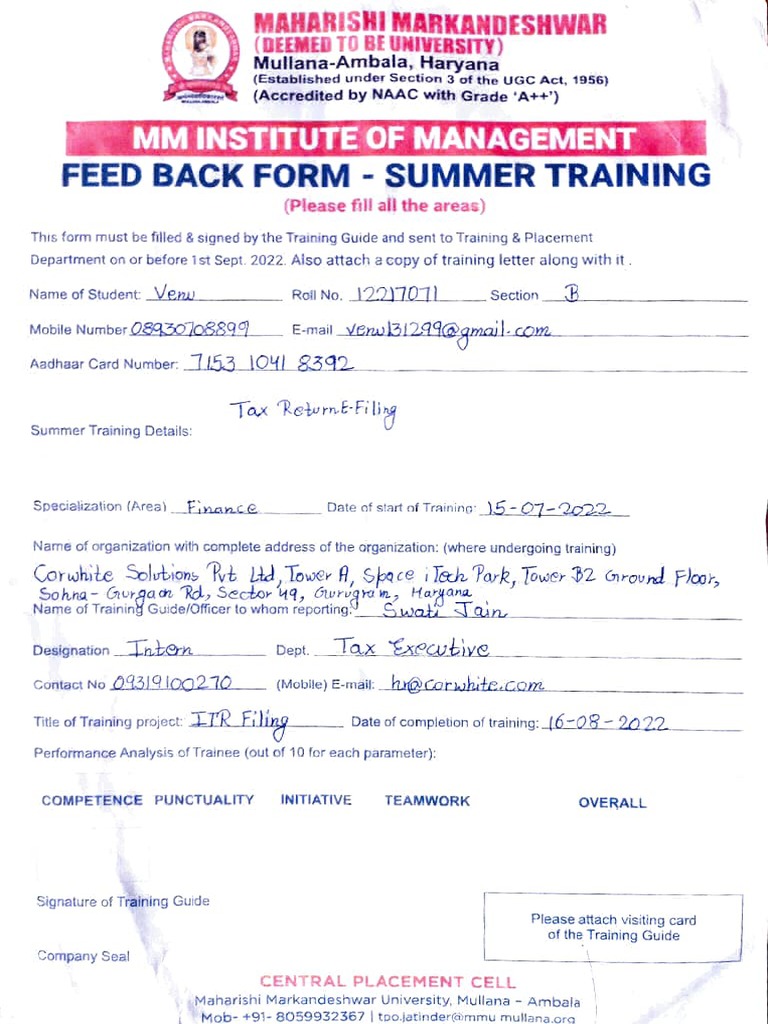 MAHARISHI MARKANDESHWAR
(DEEMED TO BE UNIVERSITY)
Mullana-Ambala, Haryana
(Established under Section 3 of the UGC Act, 1956)
(Accredited by NAAC with Grade 'A++')
MM INSTITUTE OF MANAGEMENT
FEED BACK FORM - SUMMER TRAINING
(Please fill all the areas)
This form must be filled & signed by the Training Guide and sent to Training & Placement
Department on or before 1st Sept. 2022. Also attach a copy of training letter along with it .
Name of Student: Venu Roll No. 12217071 Section B
Mobile Number 08930708899 E-mail venu131299@gmail.com
Aadhaar Card Number: 7153 1041 8392
Tax Return E-Filing
Summer Training Details:
Specialization (Area) Finance Date of start of Training: 15-07-2022
Name of organization with complete address of the organization: (where undergoing training)
Corwhite Solutions Pvt Ltd, Tower A, Space iTech Park, Tower B2 Ground Floor,
Sohna- Gurgaon Rd, Sector 49, Gurugram, Haryana
Name of Training Guide/Officer to whom reporting: Swati Jain
Designation Intern Dept. Tax Executive
Contact No 09319100270 (Mobile) E-mail: hr@corwhite.com
Title of Training project: ITR Filing Date of completion of training: 16-08-2022
Performance Analysis of Trainee (out of 10 for each parameter):
COMPETENCE PUNCTUALITY INITIATIVE TEAMWORK OVERALL
Signature of Training Guide
Please attach visiting card
of the Training Guide
Company Seal
CENTRAL PLACEMENT CELL
Maharishi Markandeshwar University, Mullana - Ambala
Mob- +91- 8059932367 | tpo.jatinder@mmu mullana.org